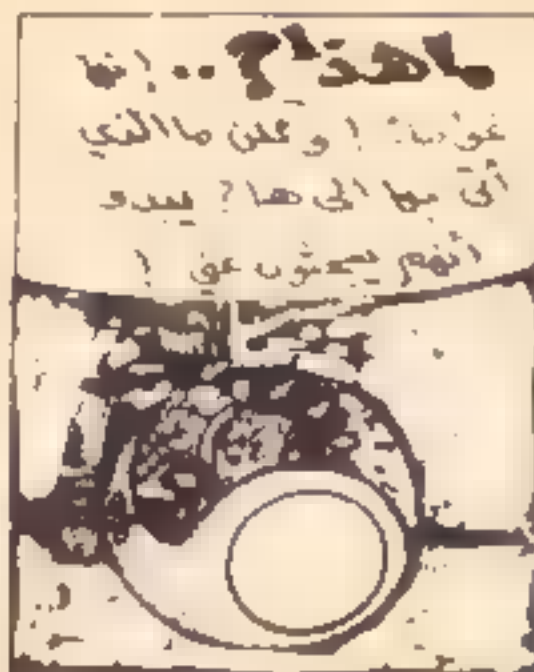 ما هذا؟.. إنها
غواصة! ولكن ما الذي
أتى بها إلى هنا؟ يبدو
أنهم يبحثون عني!